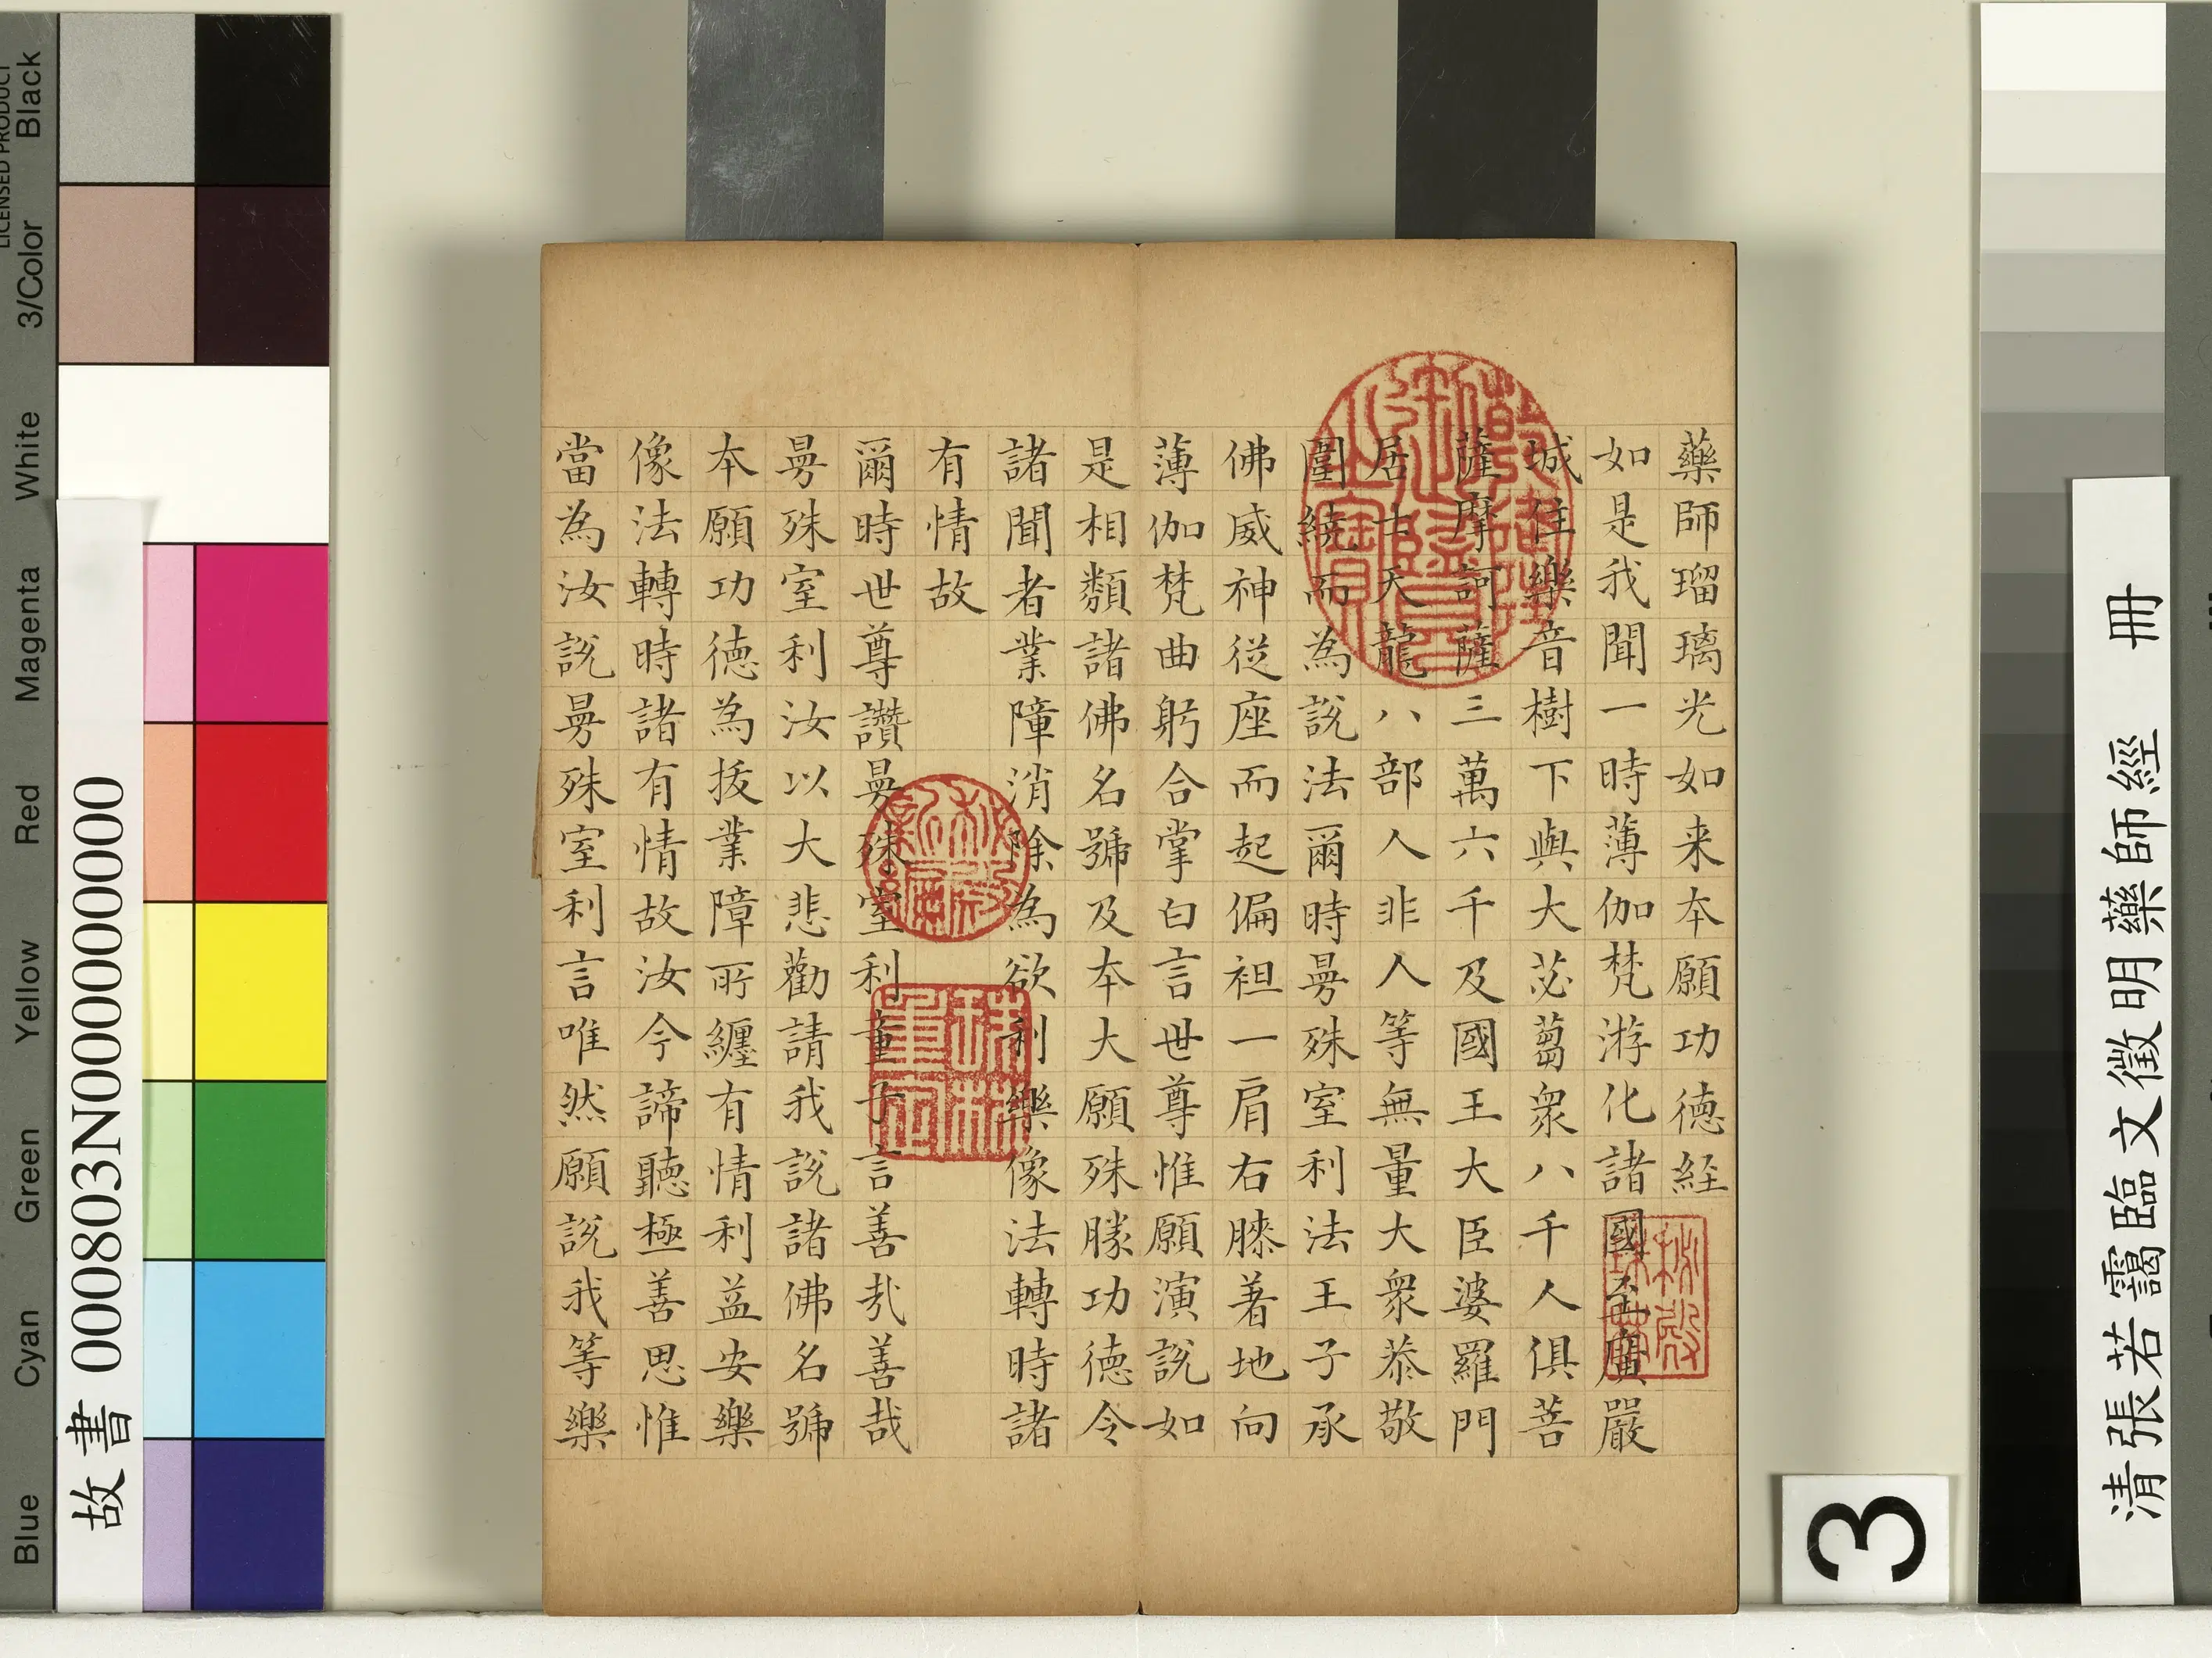 藥師瑠璃光如来本願功徳経
如是我聞一時薄伽梵游化諸國至廣嚴
城住樂音樹下與大苾蒭衆八千人俱菩
薩摩訶薩三萬六千及國王大臣婆羅門
居士天龍八部人非人等無量大衆恭敬
圍繞而為說法爾時曼殊室利法王子承
佛威神從座而起偏袒一肩右膝著地向
薄伽梵曲躬合掌白言世尊惟願演說如
是相類諸佛名號及本大願殊勝功德令
諸聞者業障消除為欲利樂像法轉時諸
有情故
爾時世尊讚曼殊室利童子言善哉善哉
曼殊室利汝以大悲勸請我說諸佛名號
本願功德為拔業障所纏有情利益安樂
像法轉時諸有情故汝今諦聽極善思惟
當為汝說曼殊室利言唯然願說我等樂
乾隆御覽之寶
秘殿新編
秘殿珠林
珠林重定
清張若靄臨文徵明藥師經 冊
3
故書 000803N000000000
LICENSED PRODUCT
Blue Cyan Green Yellow Red Magenta White 3/Color Black